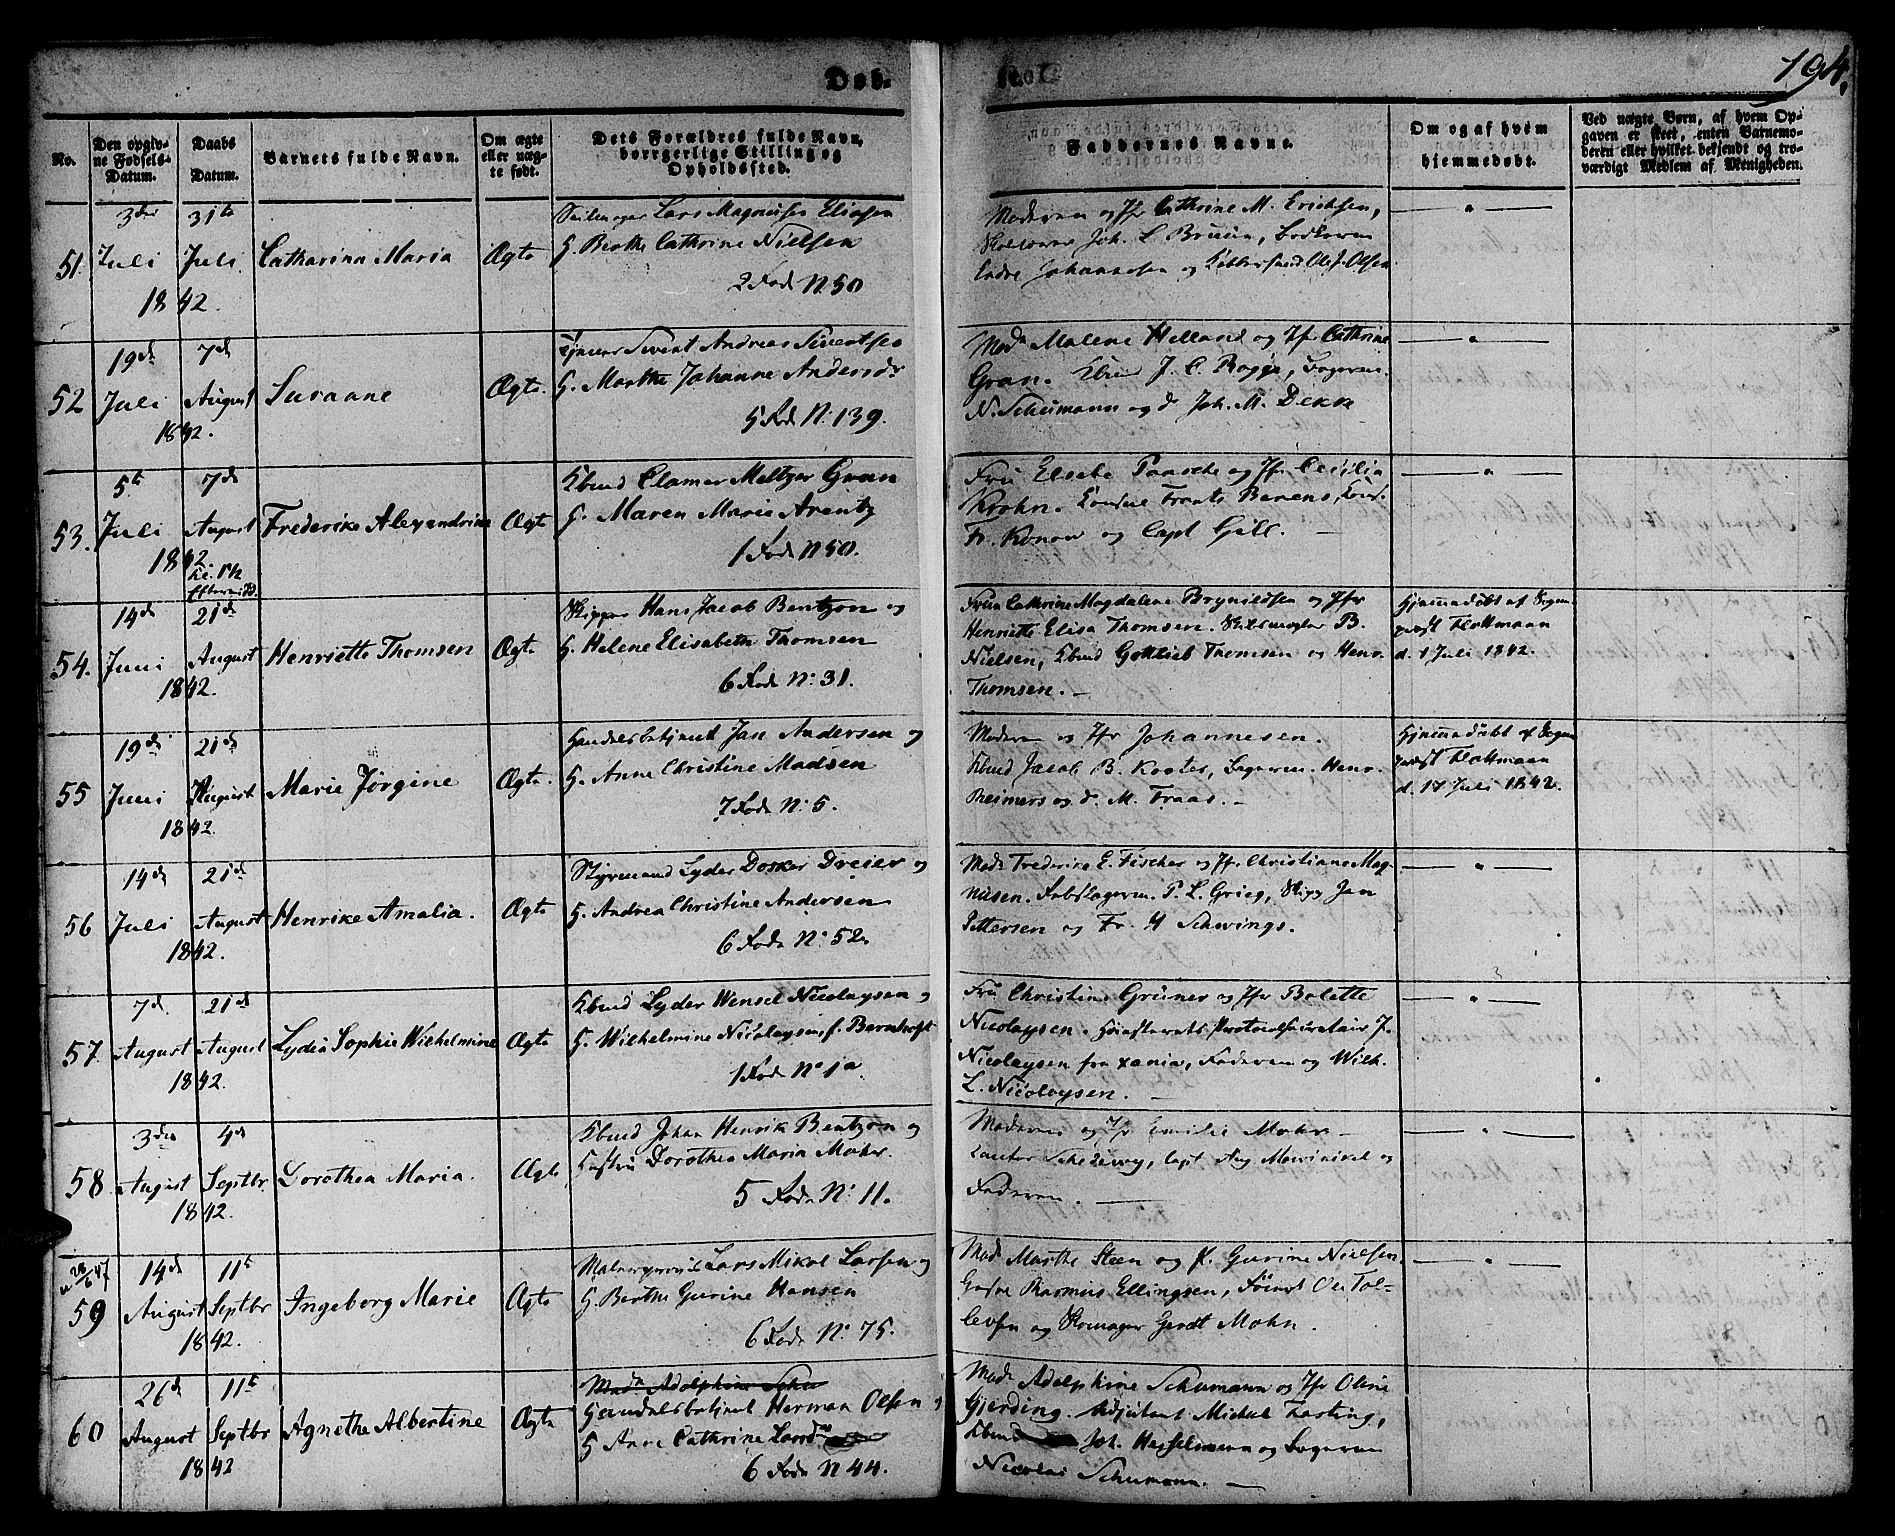 Døb-
194.
No.
Den opgiv-
ne Fødsels-
Datum.
Daabs
Datum.
Barnets fulde Navn.
Om ægte
eller uæg-
te født.
Dets Forældres fulde Navn,
borgerlige Stilling og
Opholdssted.
Faddernes Navne.
Om og af hvem
hjemmedøbt.
Ved uægte Børn, af hvem Op-
gaven er skeet, enten Barnemo-
deren eller hvilket bekjendt og tro-
værdigt Medlem af Menigheden.
51.
3die
Juli
31te
Juli
1842.
Catharina Maria
Ægte
Lars Magnus Eliasen
H. Berthe Cathrine Nielsen
2 Rode N. 50
Moderen og Jfr Cathrine M. Erichsen,
Joh. L. Bruun, Bødkeren
Endre Johannesen og Ole J. Olsen
52
19de
Juli
7de
August
1842.
Susanne
Ægte.
Sivert Andreas Sivertsen
H. Marthe Johanne Andersdr
5 Rode N. 139.
Mad. Malene Helland og Jfr Cathrine
Gran. Kbmd J. C. Rogge,
N. Schumann og d. Joh. M. Dekke
53.
5te
Juli
7de
August
1842.
Frederike Alexandrine
Ægte
Kbmd Clamer Meltzer Gran
H. Maren Marie Arentz
1 Rode N 50.
Fru Elsebe Paasche og Jfr Cecilia
Krohn. Konsul Traats Barens,
Fr. Konow og Capt Gill. —
54.
14de
Juni
Kl. 1½
Efterm.
21de
August
1842.
Henriette Thomsen
Ægte.
Skipper Hans Jacob Bentzon og
H. Helene Elisabeth Thomsen
6 Rode N. 31.
Fru Cathrine Magdalene Brynildsen og Jfr
Henriette Elisa Thomsen. Skibsmægler B.
Nielsen, Kbmd Gottlieb Thomsen og Henr.
Thomsen. —
Hjemmedøbt af Sogne
præst Flottmann
d. 1 Juli 1842.
55
19de
Juni
21de
August
1842.
Marie Jørgine
Ægte.
Handelsbetjent Jan Andersen og
H. Anne Christine Madsen
7 Rode N. 5.
Moderen og Jfr Johannesen.
Kbmd Jacob B. Koster, Henr.
Reimers og d. M. Traae. —
Hjemmedøbt af Sogne
præst Flottmann
d. 17 Juli 1842.
56
14de
Juli
21de
August
1842.
Henrike Amalia.
Ægte
Styrmand Lyder Dosker Dreier og
H. Andrea Christine Andersen
6 Rode N. 52.
Mad. Frederike E. Fischer og Jfr. Christiane Mag-
nusen. P. L. Grieg, Skipp Jan
Pettersen og Fr. H Schwings.
57.
7de
August
21de
August
1842.
Lydia Sophie Wilhelmine
Ægte
Kbmd Lyder Wensel Nicolaysen og
H. Wilhelmine Nicolaysen, f. Berndtoft
1 Rode N. 1a
Fru Christine Grüner og Jfr Bolette
Nicolaysen. Høiesterets Protocolsecretair J.
Nicolaysen fra Xania, Faderen og Wilh.
L. Nicolaysen. —
58.
3die
August
4de
Septbr.
1842.
Dorothea Maria.
Ægte
Kbmd Johan Henrik Bentzon og
Hustru Dorothea Maria Mohr.
5 Rode N. 11.
Moderen og Jfr Emilie Mohr —
Capt Aug Mowinckel og
Faderen. —
59
14de
August
11te
Septbr
1842.
Ingeborg Marie
Ægte
Malersvend Lars Mikal Larsen og
H. Berthe Gurine Hansen
6 Rode N. 75.
Mad. Marthe Steen og P. Gurine Nielsen.
Rasmus Ellingsen, Ole Tol-
levsen og Skomager Gerdt Mohn.
60
26de
August
11te
Septbr
1842
Agnethe Albertine
Ægte
Mad. Adolphine Schu
Handelsbetjent Herman Olsen og
H Anne Cathrine Land
6 Rode N 44.
Mad. Adolphine Schumann og Jfr Oline
Gjerding. Adjutant Michel Fasting,
Kbmd Joh. Hesselmann og
Nicolai Schumann. —